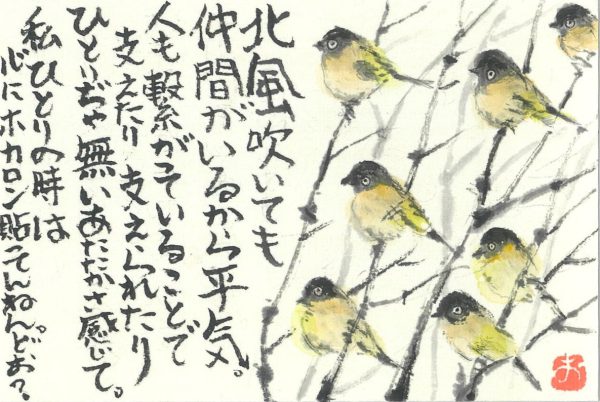 北風吹いても
仲間がいるから平気。
人も繋がっていることで
支えたり 支えられたり
ひとりぢゃ無いあたたかさ感じて。
私ひとりの時は
心にホカロン貼ってんねん。どお?